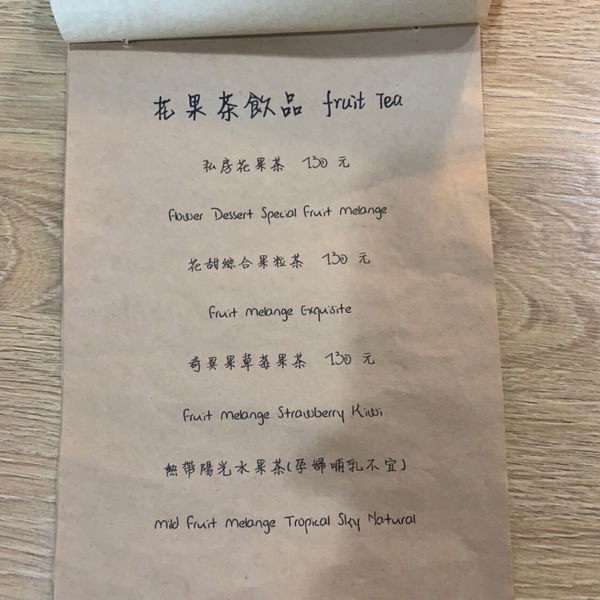 花果茶飲品 fruit Tea
私房花果茶 130 元
flower Dessert Special fruit melange
花甜綜合果粒茶 130 元
fruit melange Exquisite
奇異果草莓果茶 130 元
fruit melange Strawberry Kiwi
熱帶陽光水果茶(孕婦哺乳不宜)
mild fruit melange Tropical Sky Natural